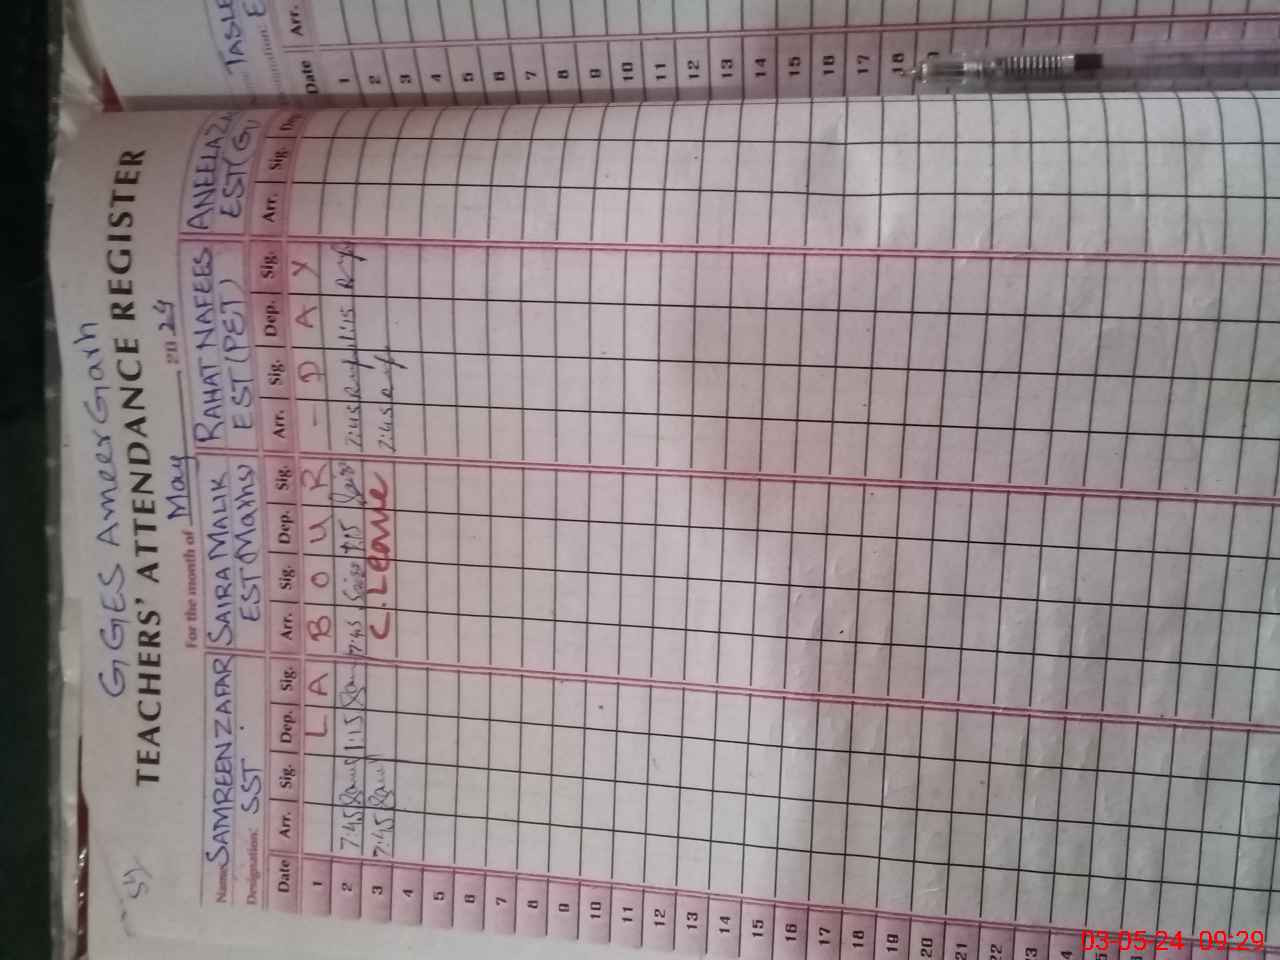 GGES AmeerGarh
TEACHERS' ATTENDANCE REGISTER
For the month of May 2024
Name SAMREEN ZAFAR SAIRA MALIK RAHAT NAFEES ANEELA
Designation: SST. EST (Maths) EST (PET) EST (G)
Date Arr. Sig. Dep. Sig. Arr. Sig. Dep. Sig. Arr. Sig. Dep. Sig. Arr. Sig.
1 L A B O U R - D A Y
2 7:45 1:15 7:45 7:45 1:15
3 7:45 C. Leave 7:45
4
5
6
7
8
9
10
11
12
13
14
15
16
17
18
19
20
21
22
23
Date Arr.
1
2
3
4
5
6
7
8
9
10
11
12
13
14
15
16
17
18
03-05-24 09:29